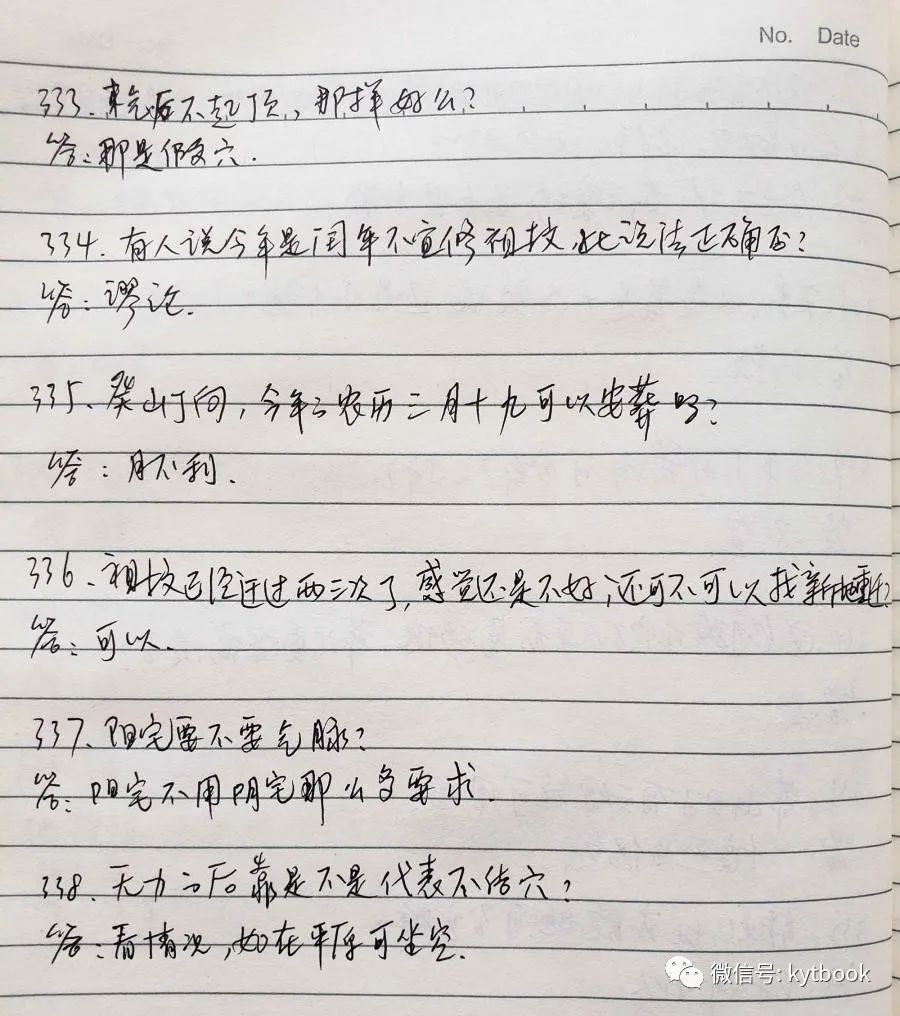 No. Date
333. 来气后不起顶,那样好么?
答:那是假穴.
334. 有人说今年是闰年不宜修祖坟,此说法正确否?
答:谬论.
335、癸山丁向,今年农历三月十九可以安葬吗?
答:月不利.
336、祖坟已经迁过两三次了,感觉还是不好,还可不可以找新地重迁?
答:可以.
337、阳宅要不要气脉?
答:阳宅不用阴宅那么多要求.
338、无力的后靠是不是代表不结穴?
答:看情况,如在平原可坐空.
微信号: kytbook